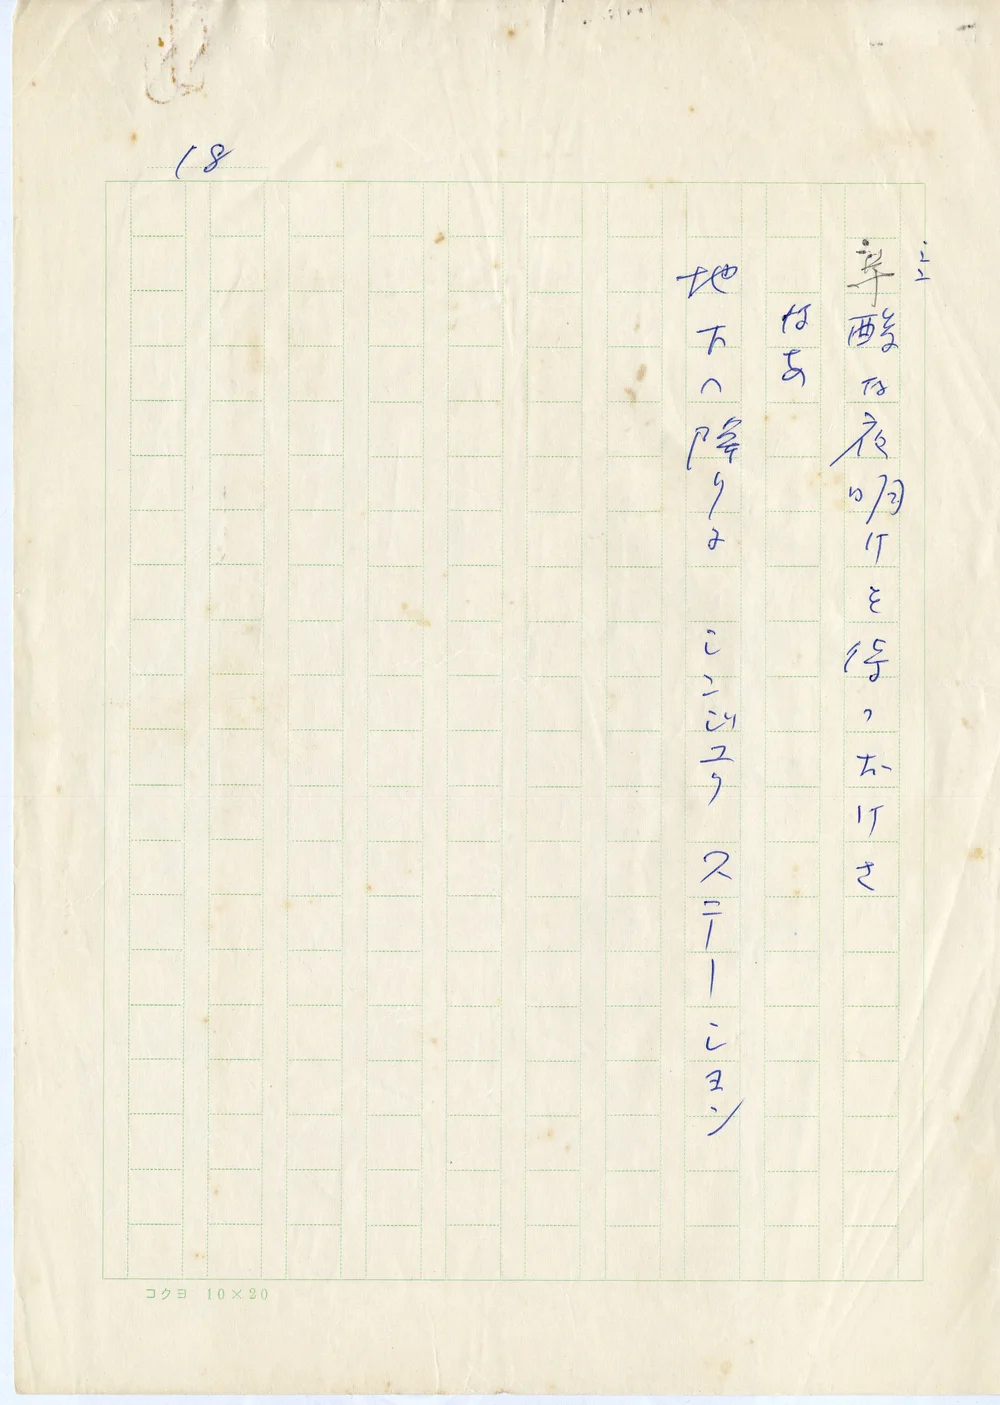 18
辛酸な夜明けを待つおけさ
なあ
地下へ降りる シンジュク ステーション
コクヨ 10×20